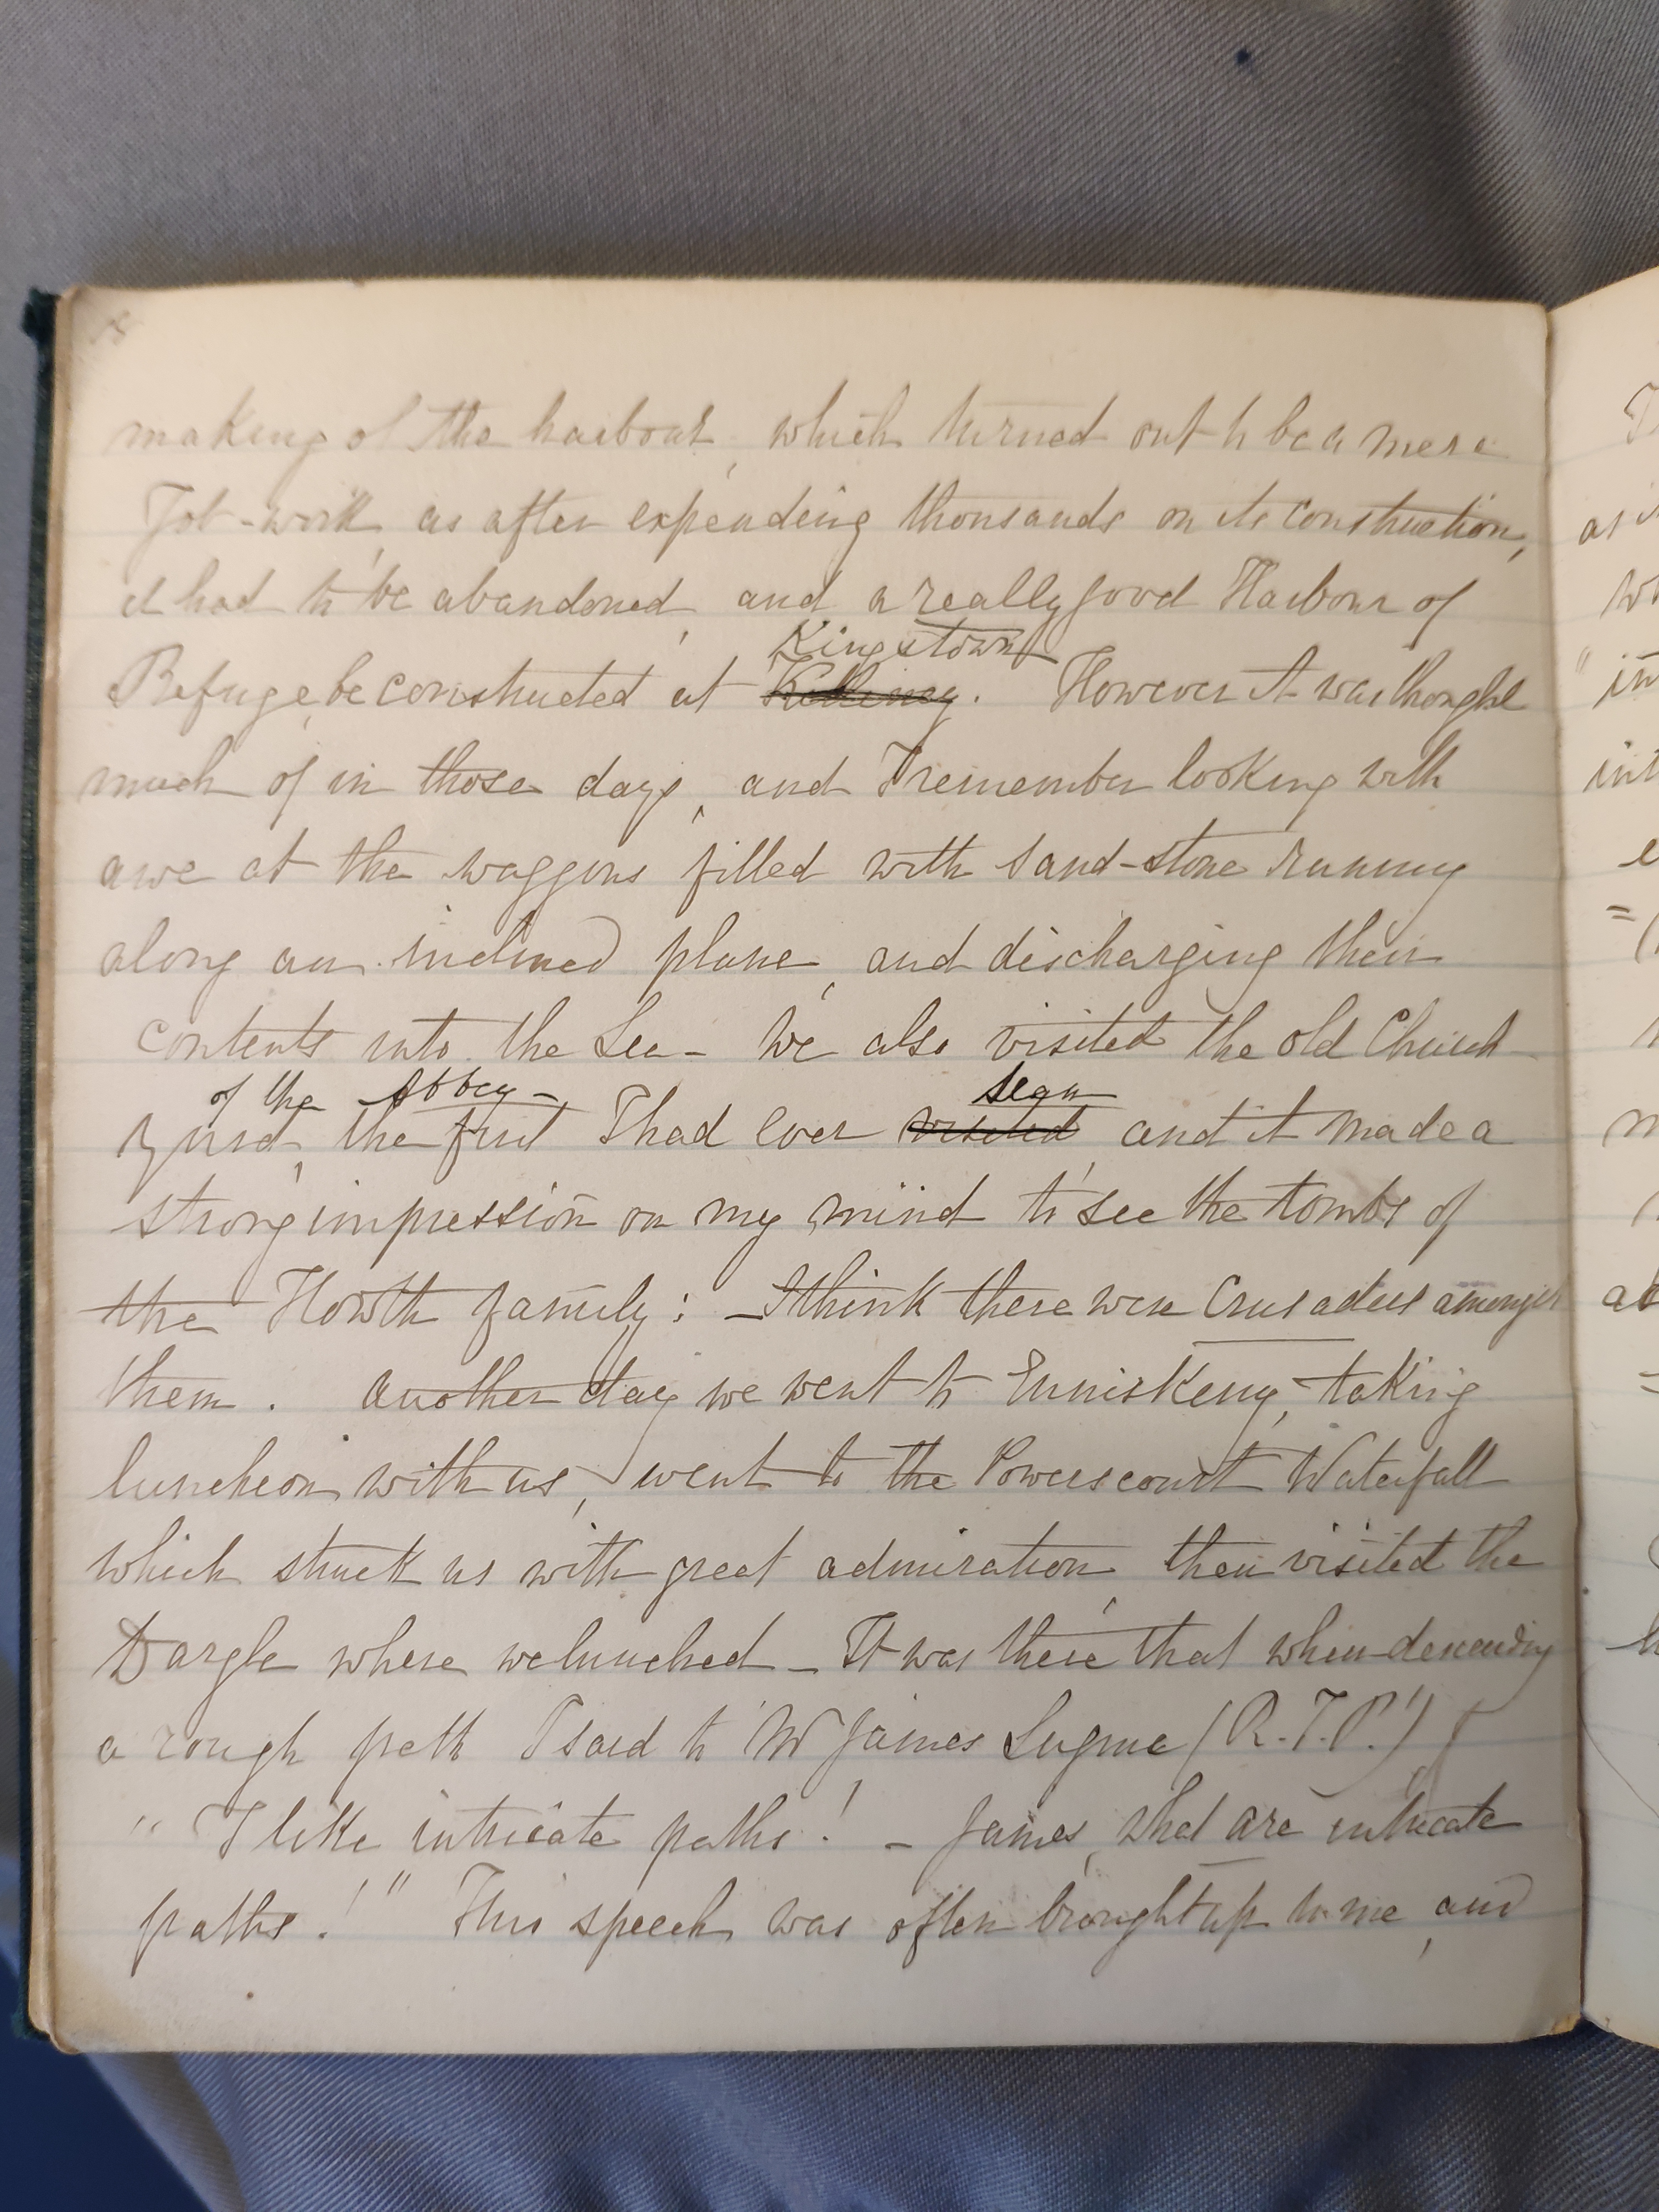 making of the harbour, which turned out to be a mere
Job-work, as after expending thousands on its construction,
it had to be abandoned, and a really good Harbour of
Kingstown
Refuge, be constructed at Killiney. However it was thought
much of in those days, and I remember looking with
awe at the waggons filled with sand-stone running
along an inclined plane, and discharging their
contents into the Sea - We also visited the old Church
of the Abbey - seen
the first I had ever visited, and it made a
strong impression on my mind to see the tombs of
the Howth family: - I think there were Crusaders amongst
them. Another day we went to Enniskerry, taking
luncheon with us, went to the Powerscourt Waterfall
which struck us with great admiration, then visited the
Dargle where we lunched - It was there that when descending
a rough path I said to W James (R.I.P.!)
" I like intricate paths! - James, what are intricate
paths!" This speech was often brought up to me, and